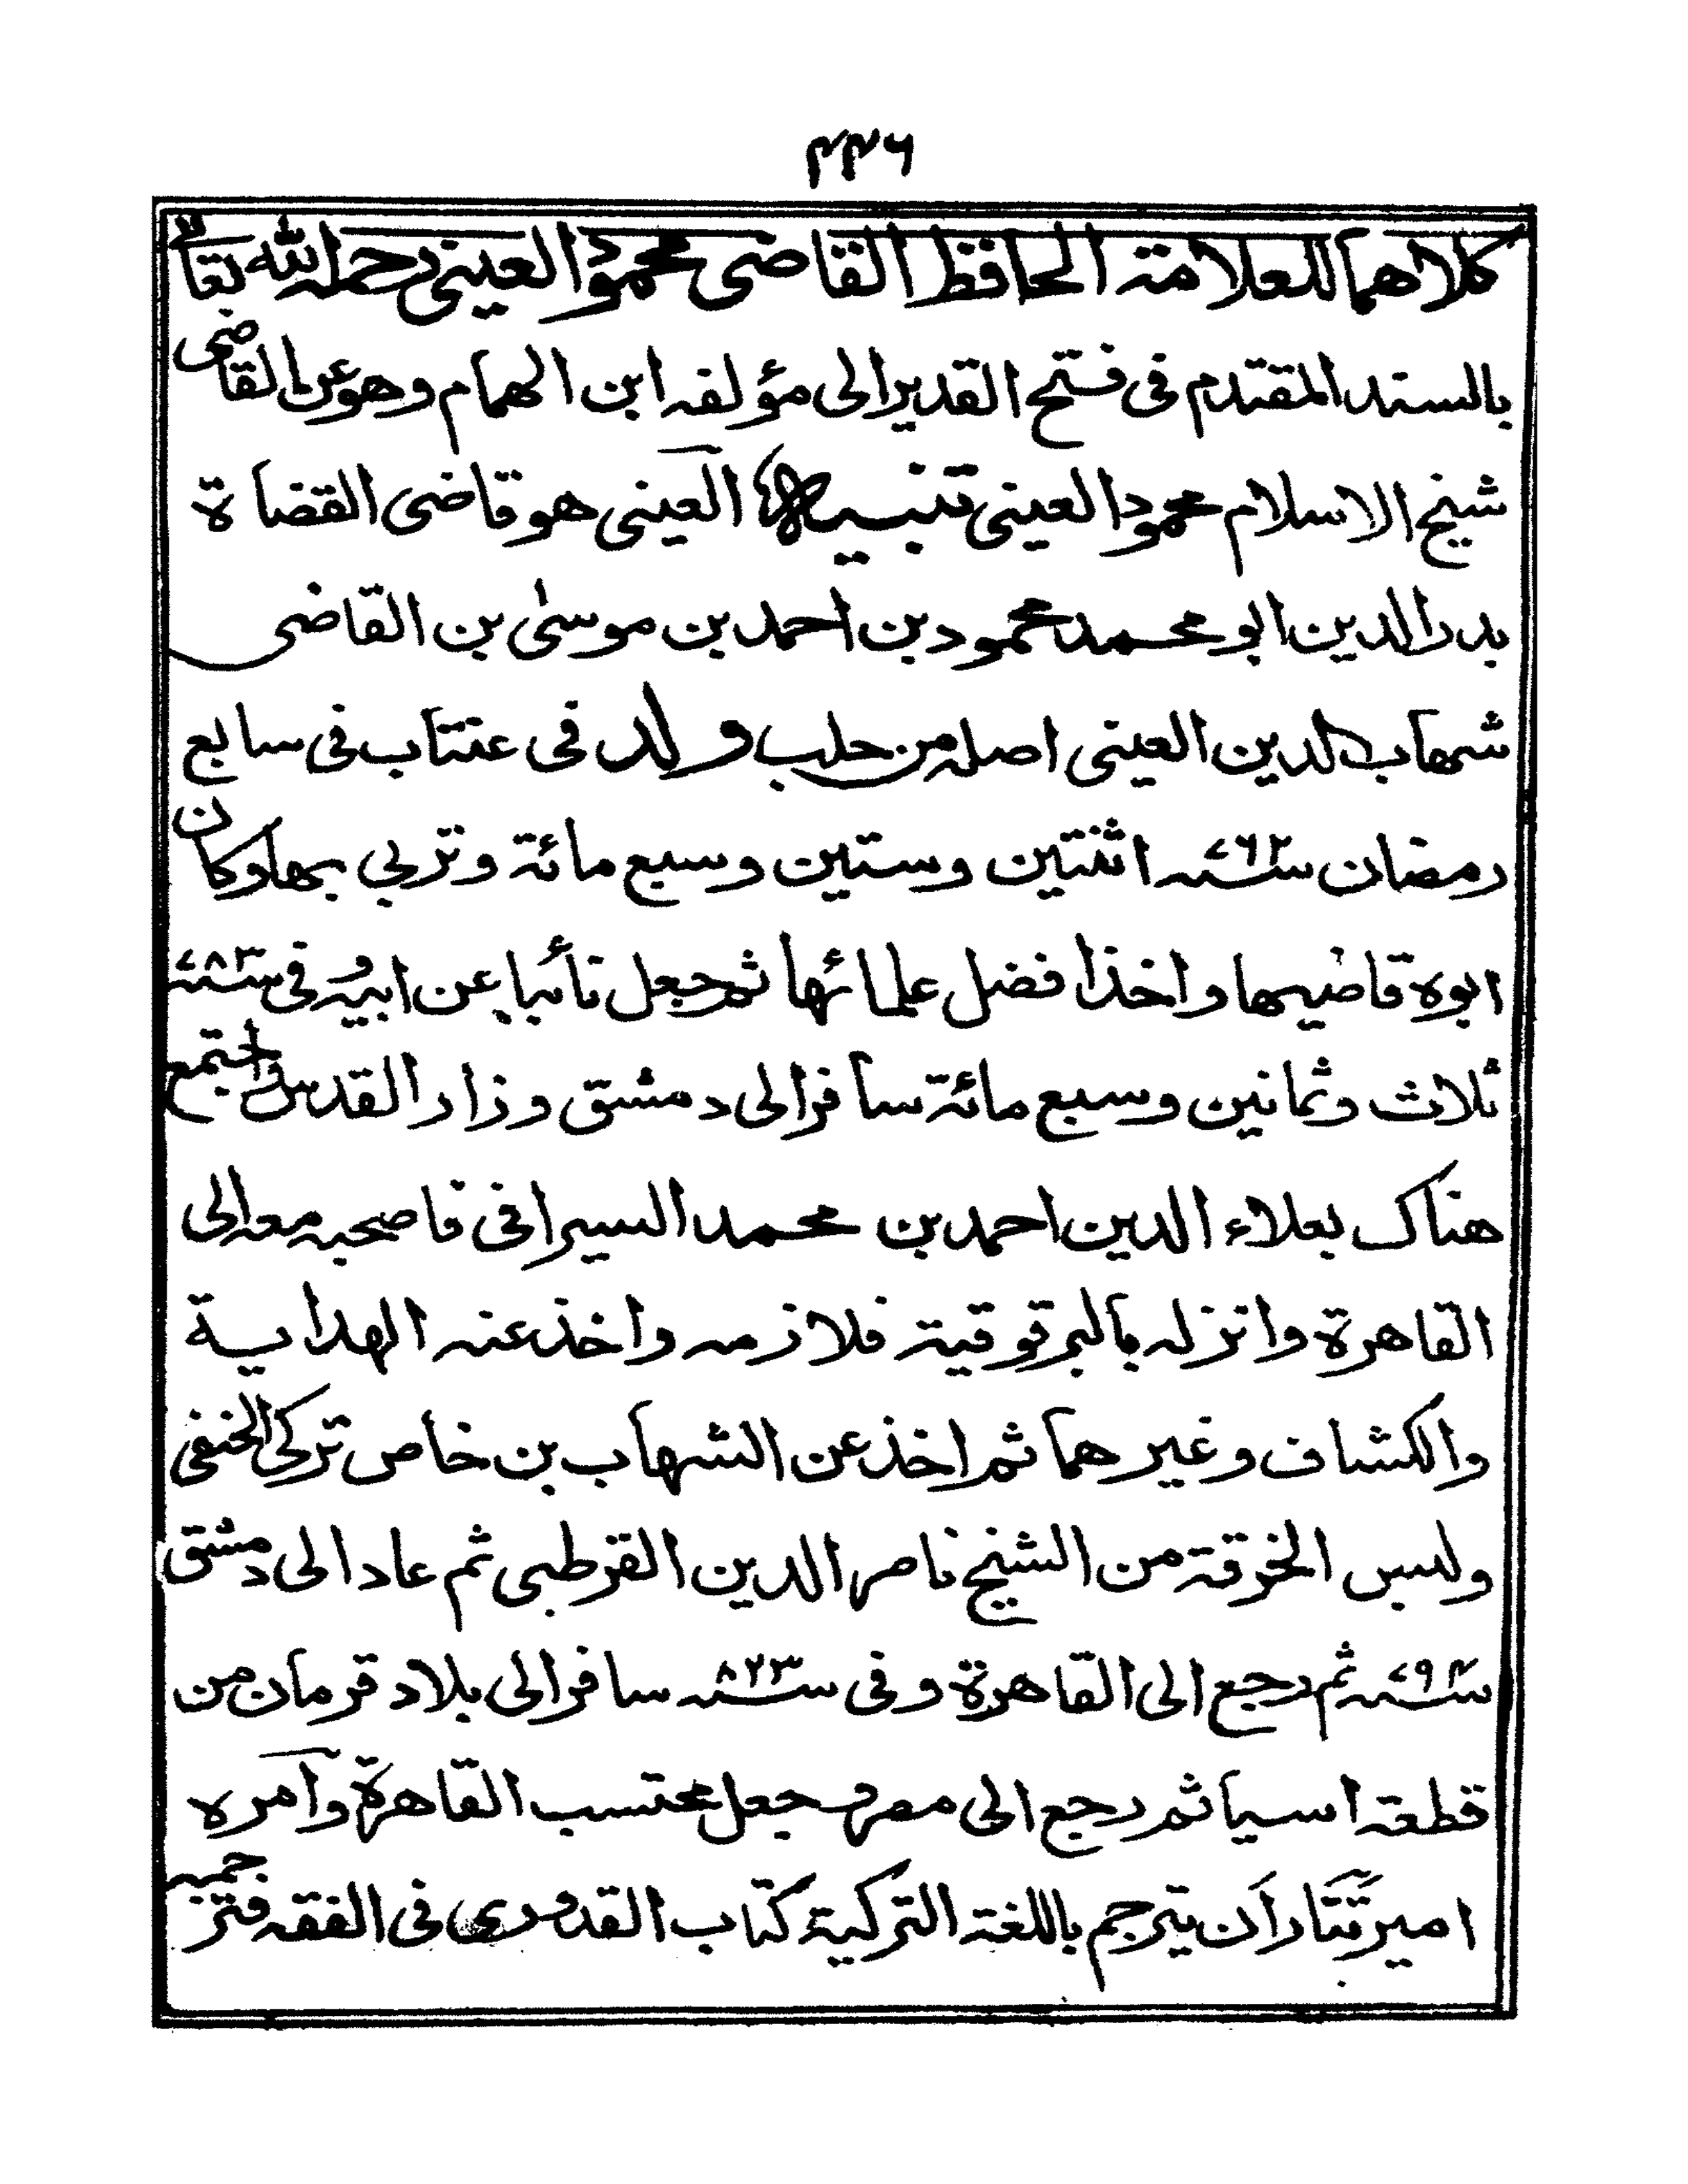 ۴۴۶
كلاهما للعلامة الحافظ القاضى محمود العينى رحمه الله تعالى
بالسند المقتدم فى فتح القدير الى مؤلفه ابن الهمام وهو عن القاضى
شيخ الاسلام محمود العينى تنبيه العينى هو قاضى القضاة
بدر الدين ابو محمد محمود بن احمد بن موسىٰ بن القاضى
شهاب الدين العينى اصله من حلب ولد فى عنتاب فى سابع
رمضان سنه ۷۶۲ اثنتين وستين وسبع مائة وتربي بها وكان
ابوه قاضيها واخذ افضل علمائها ثم جعل نائبا عن ابيه وفى سنه ۷۸۳
ثلاث وثمانين وسبع مائة سافر الى دمشق وزار القدس واجتمع
هناك بعلاء الدين احمد بن محمد السيرافى فاصحبه معه الى
القاهرة وانزله بالبرقوقية فلازمه واخذ عنه الهداية
والكشاف وغيرهما ثم اخذ عن الشهاب بن خاص تركى الحنفى
ولبس الخرقة من الشيخ ناصر الدين القرطبى ثم عاد الى دمشق
سنه ۷۹۴ ثم رجع الى القاهرة وفى سنه ۸۲۳ سافر الى بلاد قرمان من
قطعة اسيا ثم رجع الى مصر وجعل محتسب القاهرة وآمره
امير تتار ان يترجم باللغة التركية كتاب القدورى فى الفقه فترجمه